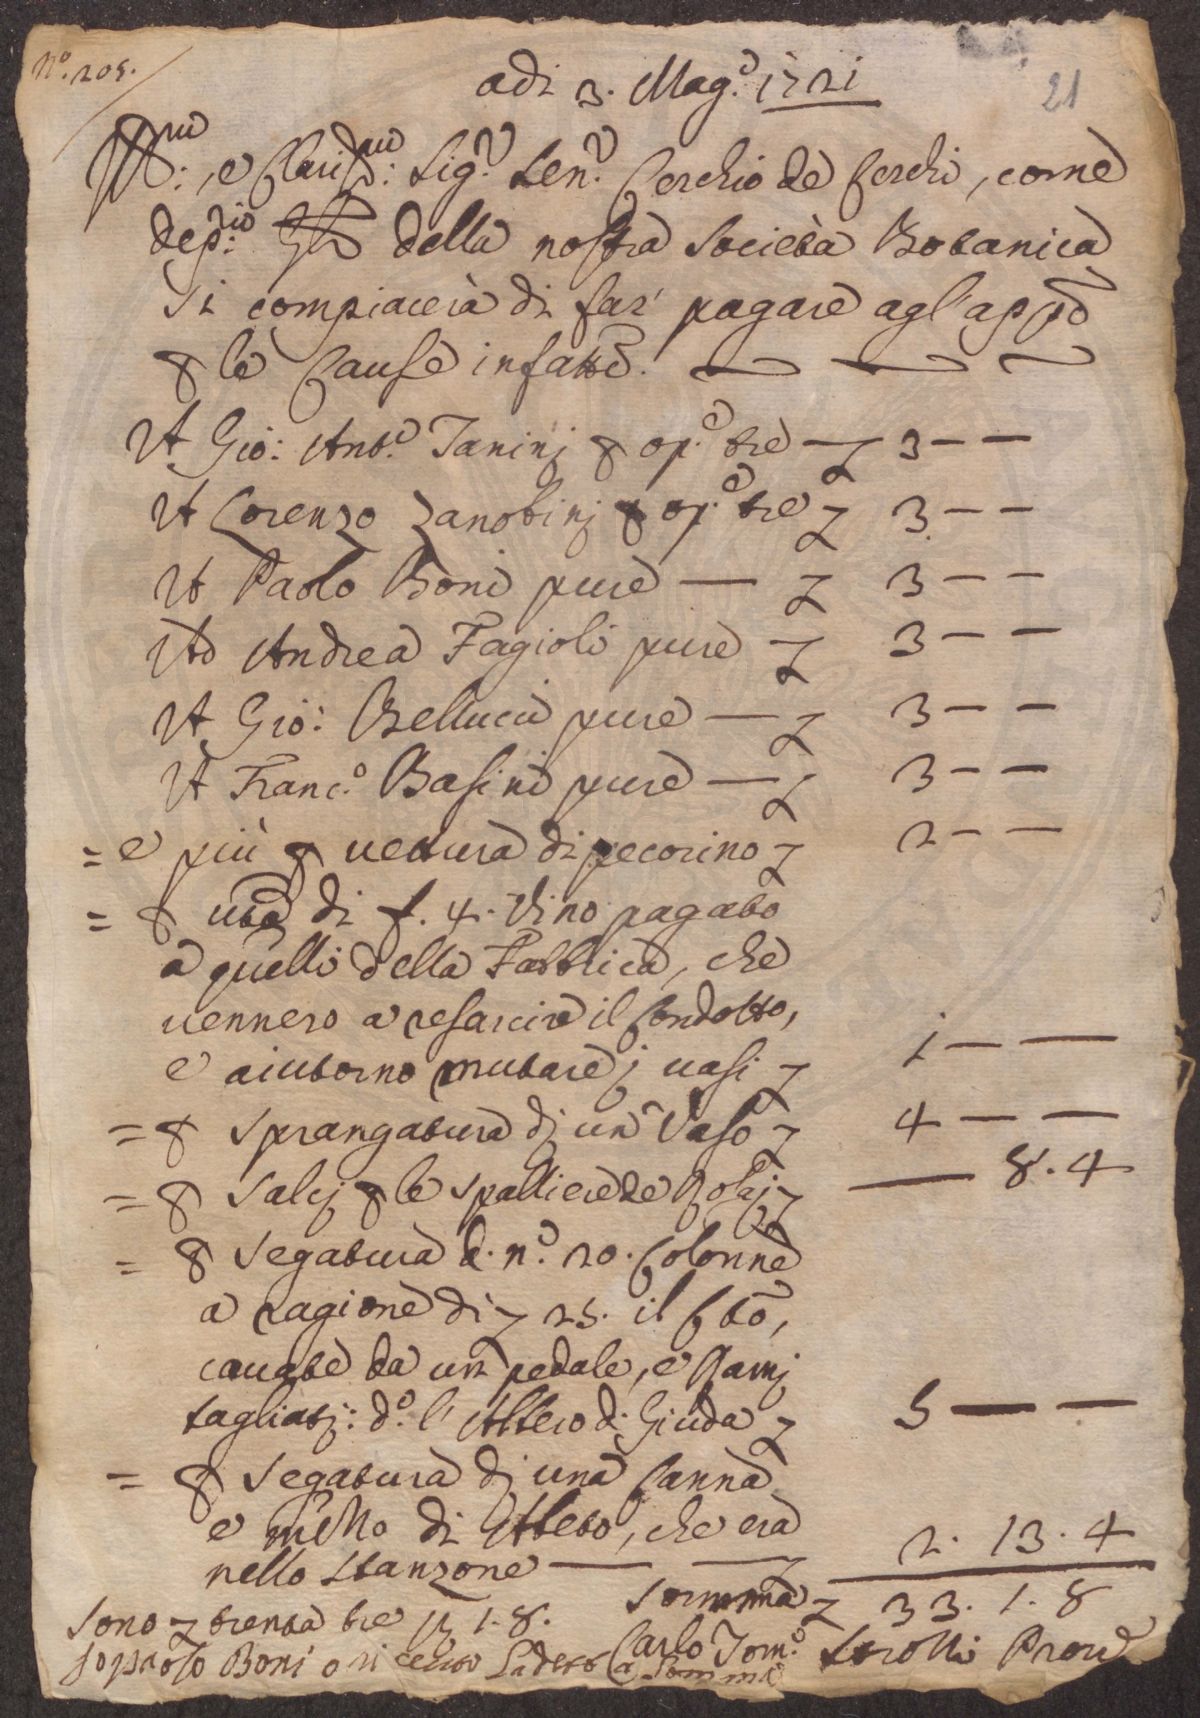 N.º 205.
adi 3. Mag.º 1721
21
Ill:mo, e Claris:mo Sig.r Sen.r Cerchio de Cerchi, come
dep:io della nostra Società Botanica
si compiacerà di far' pagare agl'app.
p le Cause infatte.
A Gio: Ant.º Tanini p op.e tre — 7 3 — —
A Lorenzo Zanobini p op.e tre 7 3 — —
A Paolo Boni pure — 7 3 — —
Ad Andrea Fagioli pure 7 3 — —
A Gio: Bellucci pure — 7 3 — —
A Franc.º Basini pure — 7 3 — —
= e più p vettura di pecorino 7 2 — —
= p di f. 4. Vino pagato
a quelli della Fabbrica, che
vennero a resarcire il Condotto,
e aiutorno mutare j vasi 7 1 — —
= p Sprangatura dj un Vaso 7 4 — —
= p Salcj p le spalliere de Rosaj 7 — 8. 4
= p Segatura d. n.º 20. Colonne
a ragione di 7 25. il Cto,
cavate da un pedale, e Ramj
tagliatj: d.º l'Albero di Giuda 7 5 — —
= p Segatura dj una Canna
e mezzo di Abeto, che era
nello Stanzone — — 7 2. 13. 4
Somma 7 33. 1. 8
Sono 7 trenta tre 1. 8.
Carlo Tom.º Prov.e
Io paolo Boni o ri ceuto la deta Somma